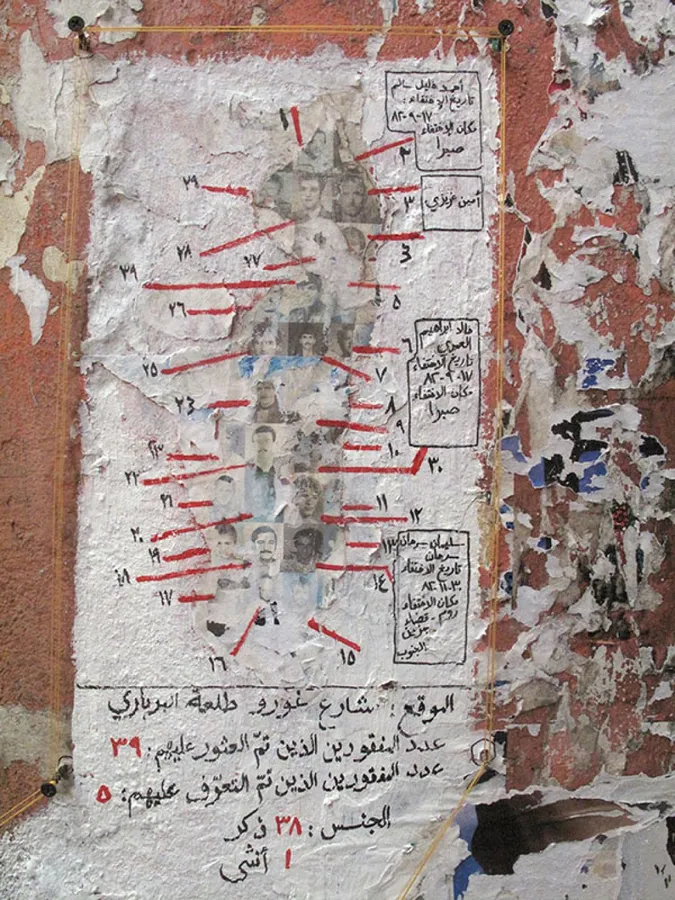 أحمد خليل سالم
تاريخ الإختفاء:
١٧-٩-٨٢
مكان الإختفاء
صبرا
أمين عزيزي
خالد ابراهيم
العمري
تاريخ الإختفاء
١٧-٩-٨٢
مكان الإختفاء
صبرا
سليمان سرحان
سرحان
تاريخ الإختفاء
٣٠-١١-٨٢
مكان الإختفاء
روم - قضاء
جزين
الجنوب
١
٢
٢٩
٣
٢٨
٢٧
٣٩
٥
٢٦
٦
٢٥
٧
٨
٩
١٠
٣٠
٢٢
٢١
١١
١٢
٢٠
١٩
١٣
١٨
١٤
١٧
١٦
١٥
الموقع: شارع غورو طلعة البرباري
عدد المفقودين الذين تمّ العثور عليهم: ٣٩
عدد المفقودين الذين تمّ التعرّف عليهم: ٥
الجنس: ٣٨ ذكر
١ أنثى